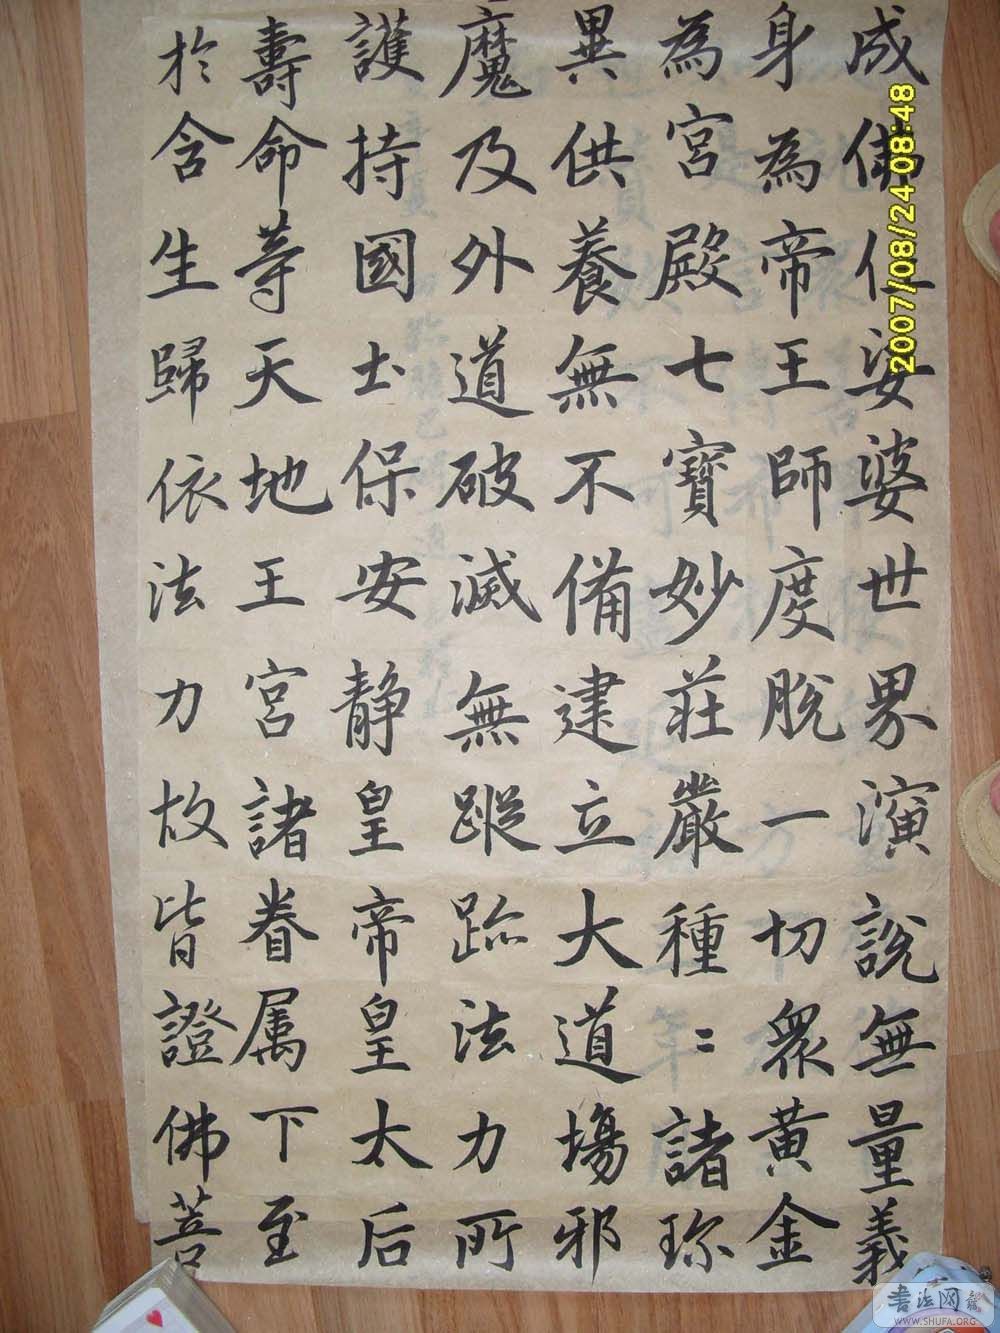 成佛仁娑婆世界演說無量義
身為帝王師度脫一切眾黃金
為宮殿七寶妙莊嚴種〻諸珎
異供養無不備建立大道場邪
魔及外道破滅無蹤跡法力所
護持國土保安静皇帝皇太后
壽命等天地王宮諸眷属下至
於含生歸依法力故皆證佛菩
2007/08/24 08:48
書法网
WWW.SHUFA.ORG